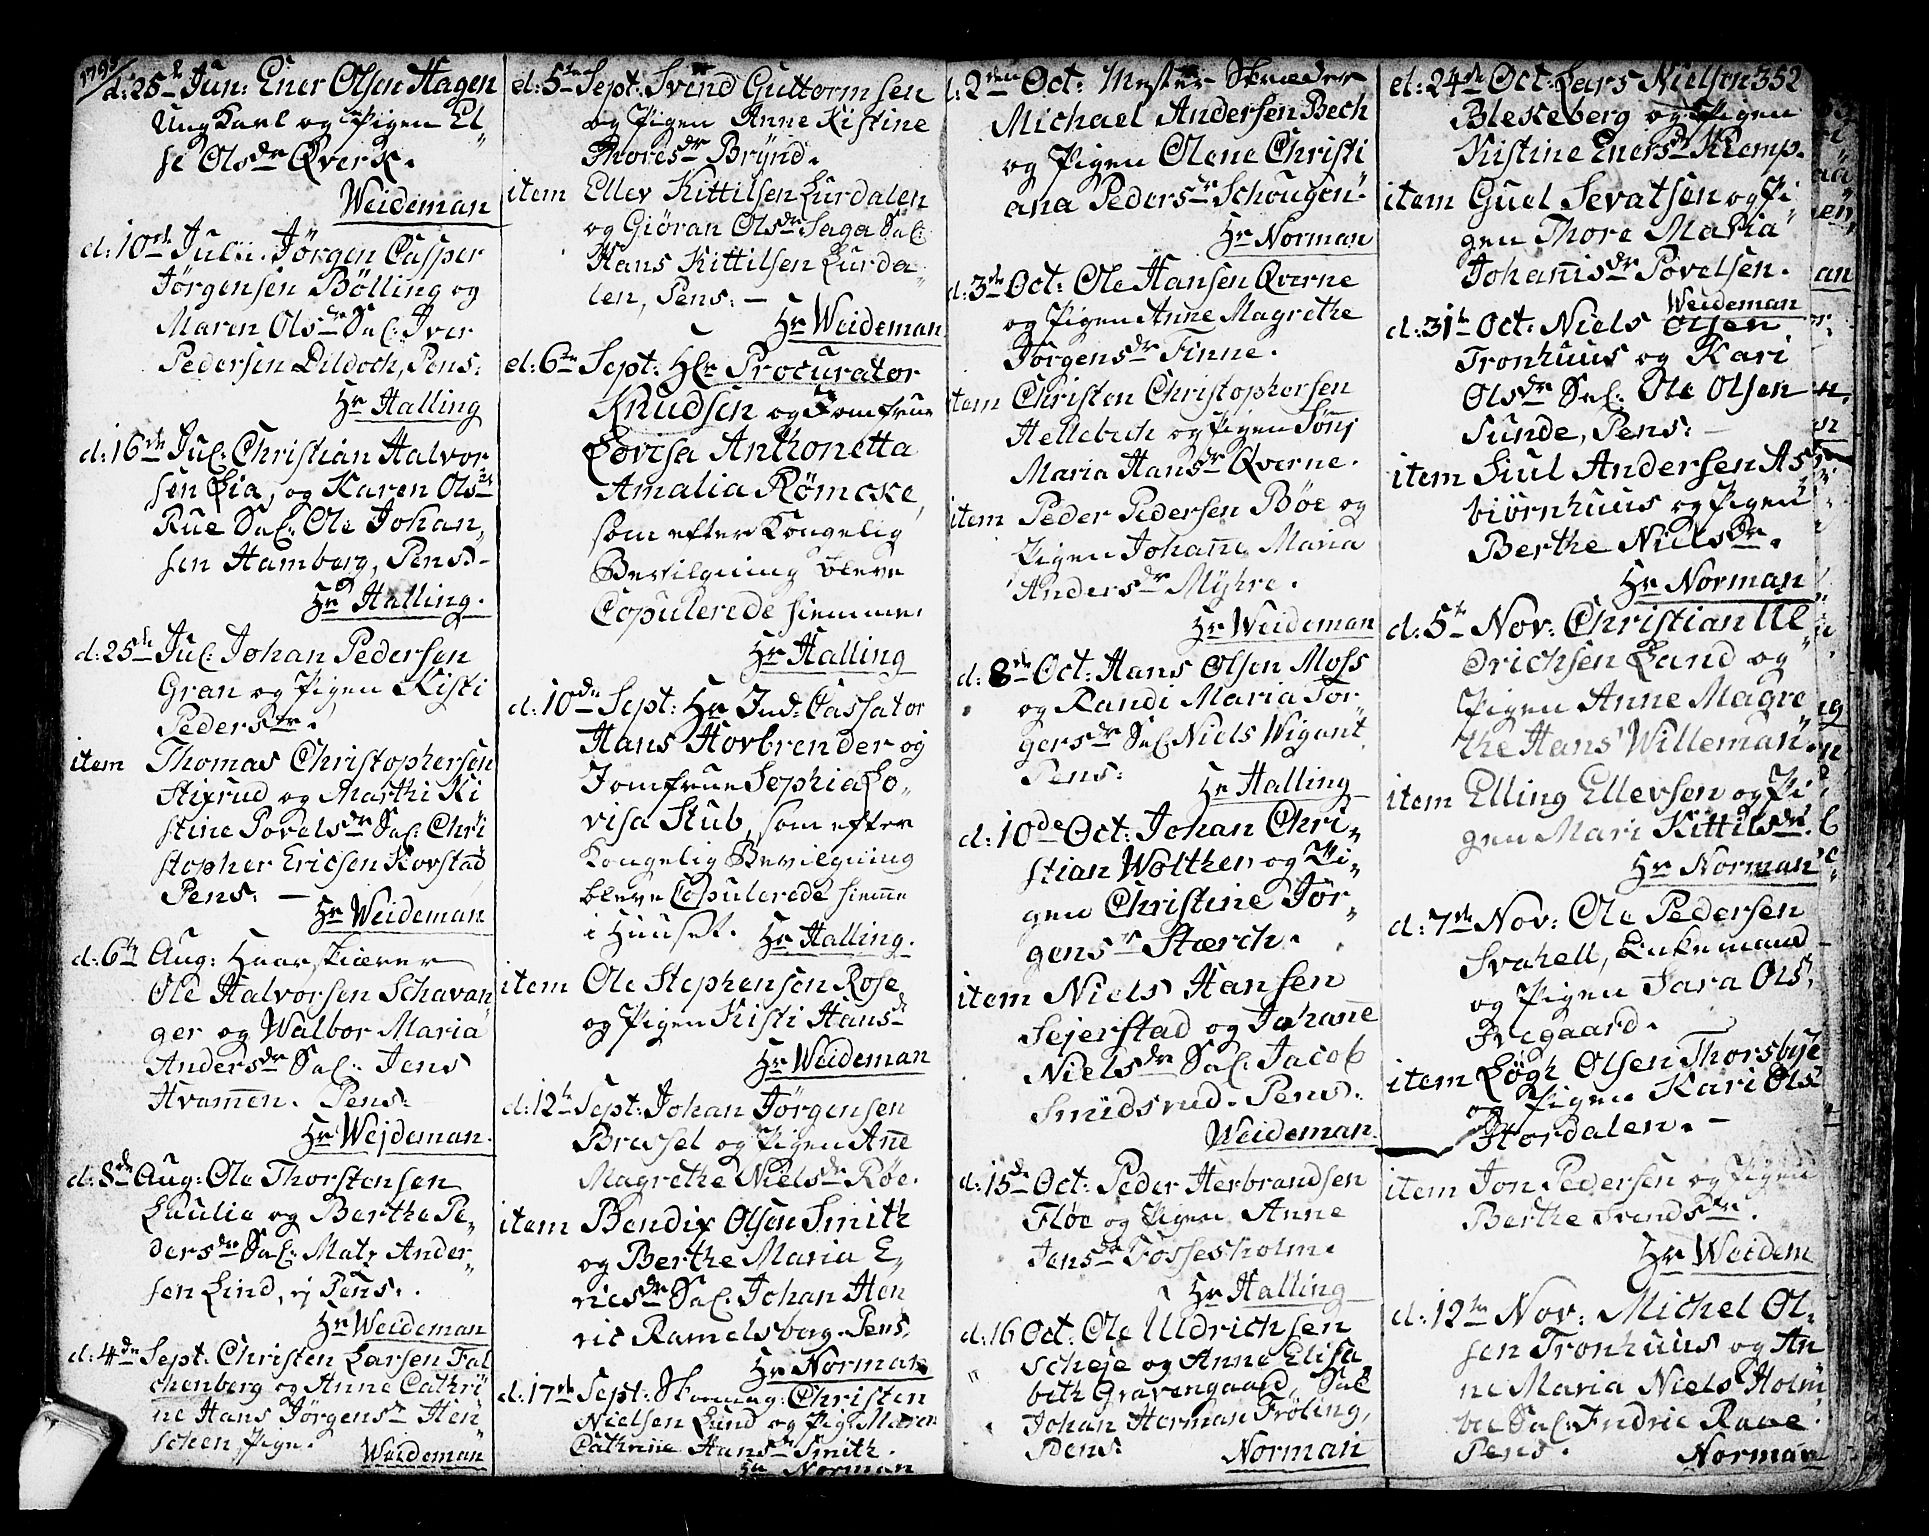 1795
d: 25de Jun: Ener Olsen Hagen
Ung Karl og Pigen El
se Olsdr Qverk.
Weideman
d: 10de Julii. Jørgen Casper
Jørgensen Bölling og
Maren Olsdr Sal: Iver
Pedersen Dildoch, Pens:
Hr Halling
d: 16de Jul: Christian Halvor
sen Lia, og Karen Olsdr
Rue Sal: Ole Johan,
sen Hamberg, Pens: -
Hr Halling.
d: 25de Jul: Johan Pedersen
Gran og Pigen Kisti
Pedersdr.
item Thomas Christophersen
Stixrud og Marthi Ki
stine Povelsdr Sal: Chri
stopher Ericsen Korstad
Pens: —
Hr Weideman
d: 6te Aug: Haarskiærer
Ole Halvorsen Schavan
ger og Walbor Maria
Andersdr Sal: Jens
Hvamen. Pens:
Hr Wejdeman.
d: 8de Aug: Ole Thorstensen
Laulia og Berthe Pe,
dersdr Sal: Matz Ander,
sen Lind, ej Pens:.
Hr Weideman
d: 4de Sept: Christen Larsen Fal
chenberg og Anne Cathri
ne Hans Jørgensdr Hen
schen, Pige.
Weideman
d: 5te Sept: Svend Guttormsen
og Pigen Anne Kistine
Thoresdr Brÿnd.
item Ellev Kittilsen Lurdalen
og Giöran Olsdr Saga Sal:
Hans Kittilsen Lurda
len, Pens: —
Hr Weideman
d: 6te Sept: Hr Procurator
Knudsen og Jomfrue
Lovisa Anthonetta
Amalia Römcke,
som efter Kongelig
Bevilgning bleve
Copulerede hiemme.
Hr Halling
d: 10de Sept: Hr Ind: Cassator
Hans Horbrender og
Jomfrue Sophia Lo,
visa Stub, som efter
Kongelig Bevilgning
bleve Copulerede hiemme
i Huuset. Hr Halling.
item Ole Stephensen Rose
og Pigen Kisti Hansdr
Hr Weideman
d: 12te Sept: Johan Jørgensen
Bressel og Pigen Anne
Magrethe Nielsdr Röe.
item Bendix Olsen Smith
og Berthe Maria E,
ricsdr Sal: Johan Hen
ric Ramelsberg. Pens,
Hr Norman
d: 17de Sept: Skomag: Christen
Nielsen Lund og Pig: Maren
Cathrine Hansdr Smith.
Hr Norman
d. 2den Oct: Mester Skræder
Michael Andersen Bech
og Pigen Olene Christi
ana Pedersdr Schougen.
Hr Norman
d: 3de Oct: Ole Hansen Qverne
og Pigen Anne Magrethe
Jörgensdr Finne.
item Christen Christophersen
Hellebech og Pigen Sönj
Maria Hansdr Qverne.
item Peder Pedersen Böe og
Pigen Johanne Maria
Andersdr Mÿhre.
Hr Weideman
d: 8de Oct: Hans Olsen Moss
og Randi Maria Tor,
gersdr Sal: Niels Wigant
Pens:
Hr Halling
d: 10de Oct: Johan Chri,
stian Wolthen og Pi,
gen Christine Jör,
gensdr Stærch.
item Niels Hansen
Sejerstad og Johanne
Nielsdr Sal: Jacob
Smidsrud. Pens:
Weideman.
d: 15de Oct: Peder Herbrandsen
Flöe og Pigen Anne
Jensdr Fossesholm.
Hr Halling
d: 16 Oct: Ole Uldrichsen
Scheje og Anne Elisa
beth Gravengaard, Sal
Johan Herman Fröling,
Pens:
Norman
352
d: 24de Oct: Lars Nielsen
Blekeberg og Pigen
Kistine Enersdr Klemp.
item Guel Sevatsen og Pi
gen Thore Maria
Johannisdr Povelsen.
Weideman
d: 31te Oct: Niels Olsen
Tronhuus og Kari
Olsdr Sal: Ole Olsen
Sunde, Pens: —
item Siul Andersen As
biörnhuus og Pigen
Berthe Nielsdr.
Hr Norman
d: 5te Nov: Christian Ul
drichsen Land og
Pigen Anne Magre
the Hans Willeman
item Elling Ellevsen og Pi
gen Mari Kittilsdr
Hr Norman
d: 7de Nov: Ole Pedersen
Svahell, Enkemand
og Pigen Sara Ols,
Ovegaard.
item Lögh Olsen Thorsbÿe
og Pigen Kari Ols
Stordalen. —
item Jon Pedersen og Pigen
Berthe Svendsdr.
Hr Weidem
d: 12te Nov: Michel Ol,
sen Tronhuus og An
ne Maria Niels Holm
boe Sal: Fridric Raae
Pens:
Norman